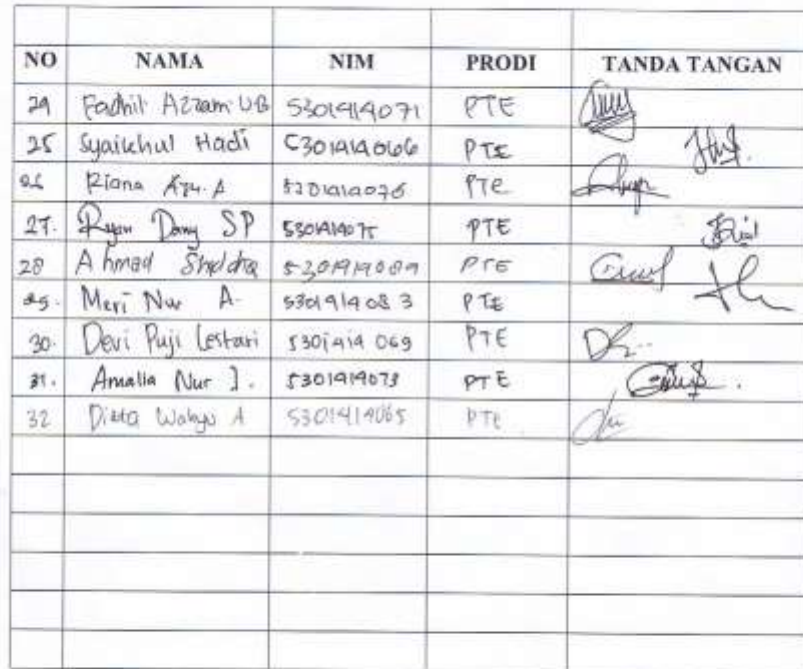 NO NAMA NIM PRODI TANDA TANGAN
24 Fadhil Azzam UB 5301414071 PTE
25 Syaikhul Hadi 5301414066 PTE
26 Riana Ayu. A 5301414076 PTE
27. Ryan Dany SP 5301414075 PTE
28 Ahmad Shiddiq 5301414089 PTE
29. Meri Nur A. 5301414083 PTE
30. Devi Puji Lestari 5301414069 PTE
31. Amalia Nur I. 5301414073 PTE
32 Ditta Wahyu A 5301414065 PTE